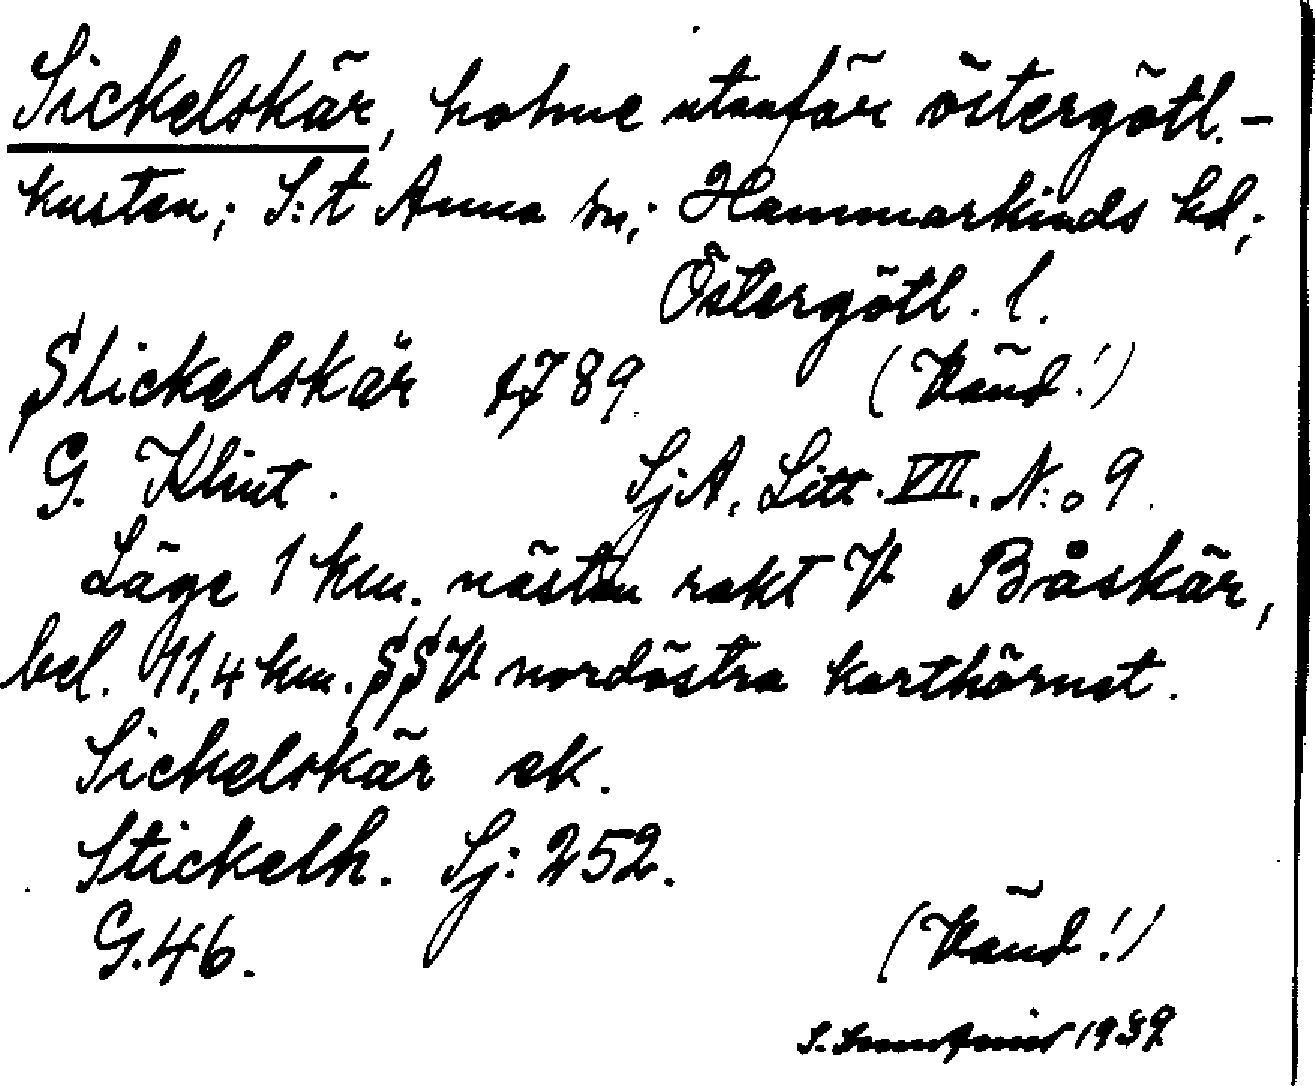 Sickelskär, holme utanför östergötl.-
kusten; S:t Anna sn; Hammarkinds hd;
Östergötl. l.
Slickelskär 1789. (Vänd!)
G. Klint. SjA, Litt. VII. N:o 9.
Läge 1 km. nästan rakt V Båskär,
bel. 11,4 km. SSV nordöstra karthörnet.
Sickelskär ek.
Stickelh. Sj: 252.
G.46. (Vänd!)
S. 1939